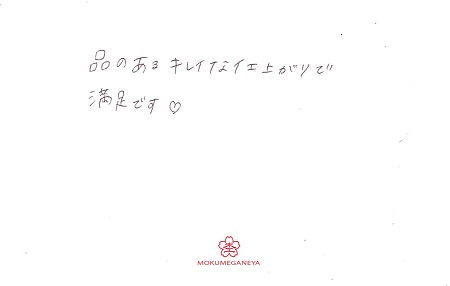 品のあるキレイな仕上がりで
満足です♡
MOKUMEGANEYA